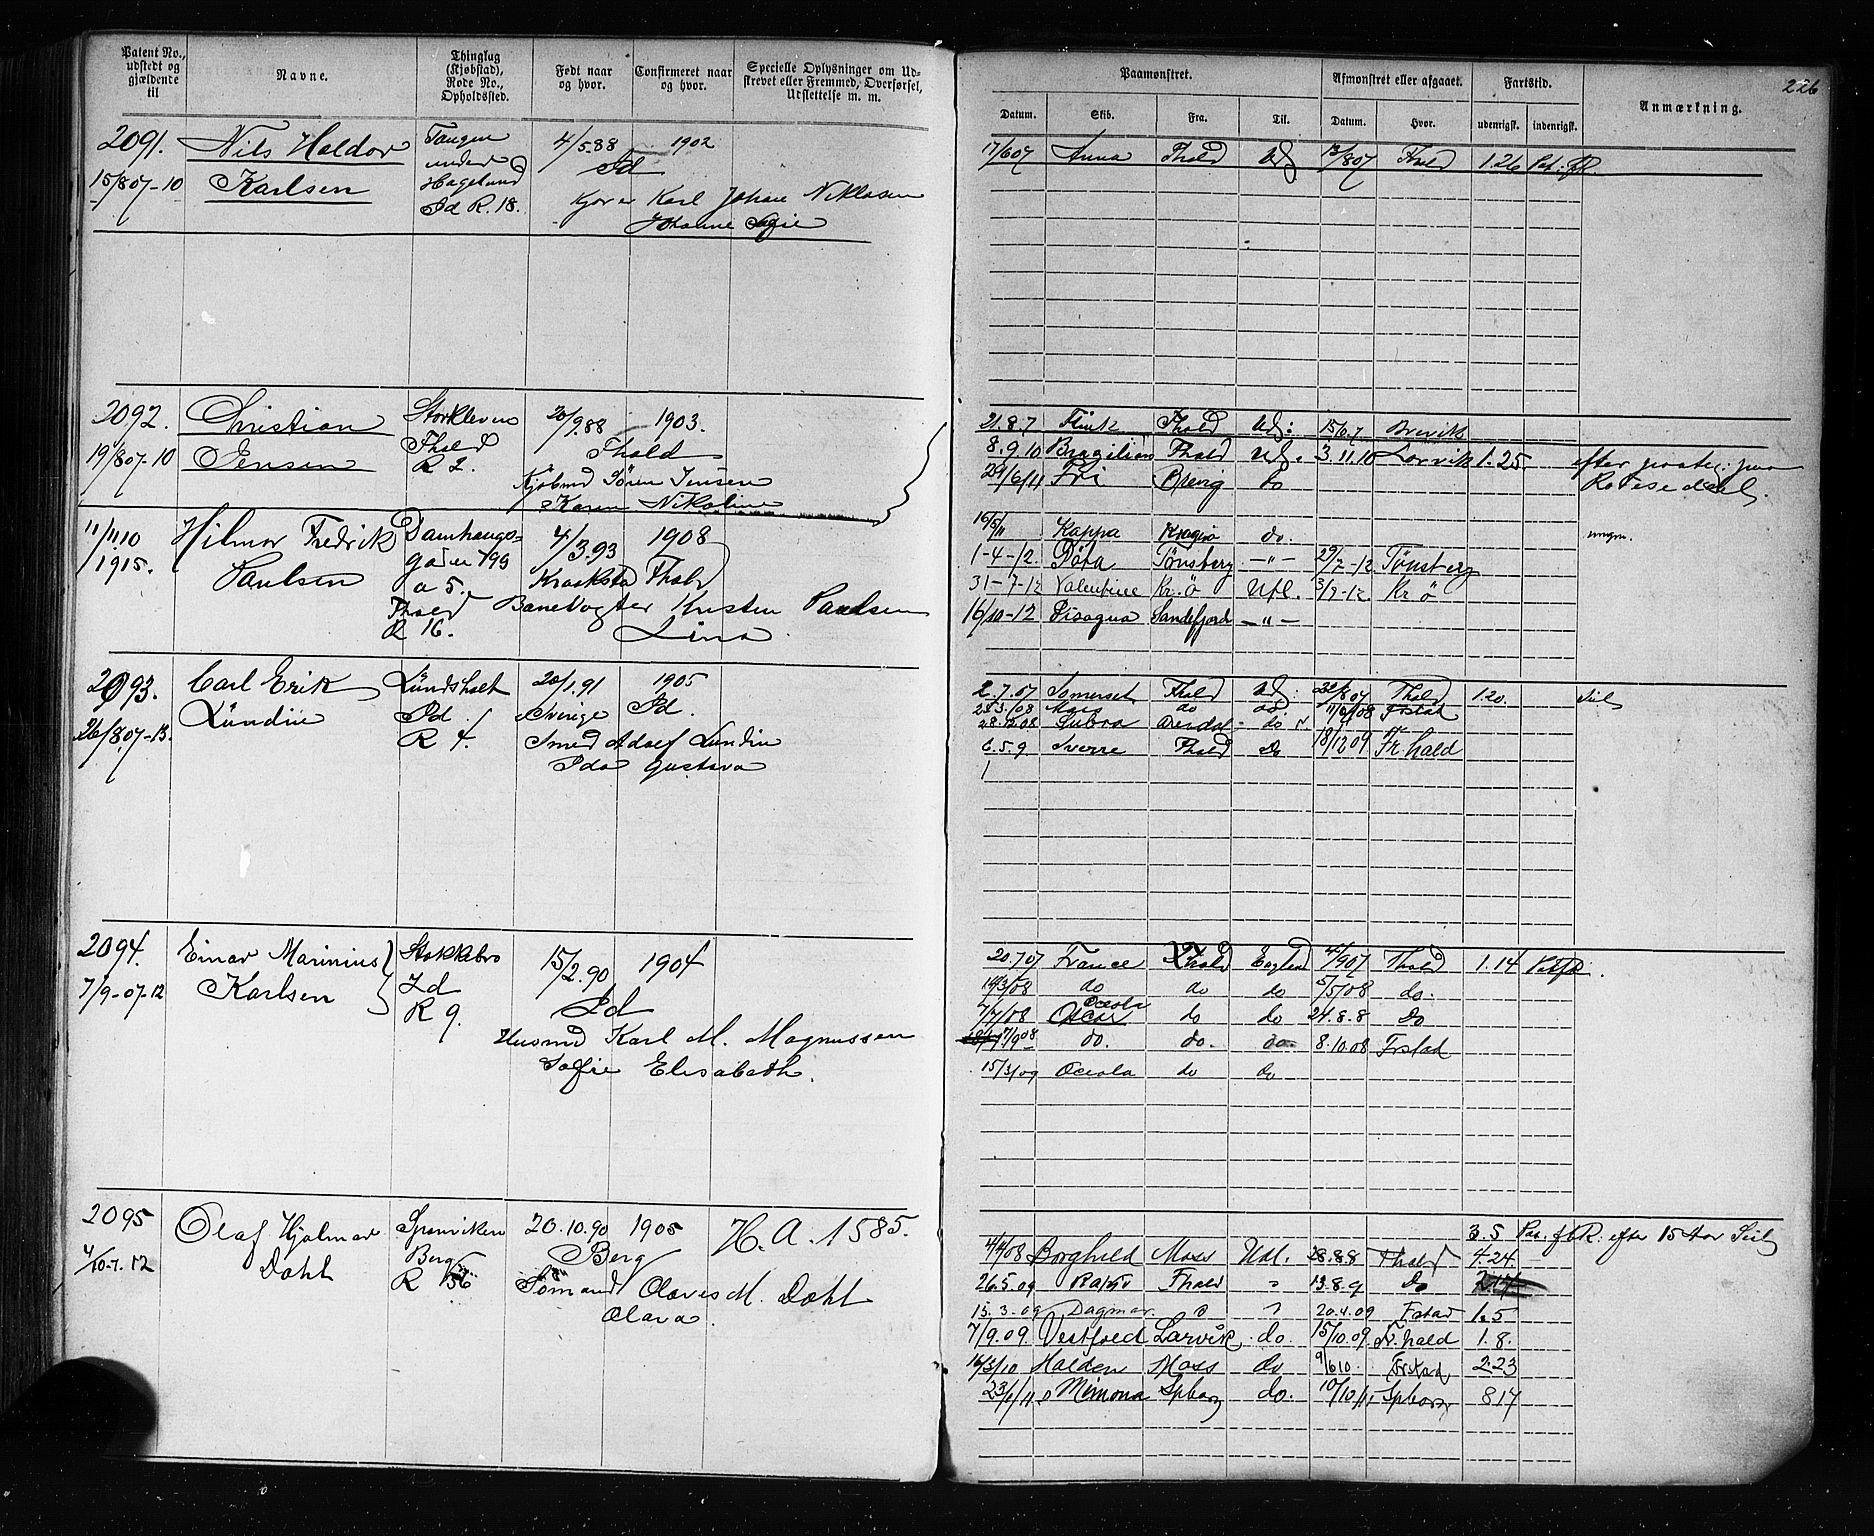 Patent No., udstedt og gjældende til
Navne.
Thinglag (Kjøbstad), Rode No., Opholdssted.
Født naar og hvor.
Confirmeret naar og hvor.
Specielle Oplysninger om Udskrevet eller Fremmed, Overførsel, Udslettelse m. m.
Paamønstret.
Afmønstret eller afgaaet.
Fartstid.
Anmærkning.
226
Datum. Skib. Fra. Til. Datum. Hvor. udenrigsk. indenrigsk.
2091. Nils Haldor Tangen 4/5 88 1902
under Id
15/8 07-10 Karlsen Hagelund
Id R. 18. Kjører Karl Johan Niklasen
Johanne Sofie
17/6 07 Anna Fhald Udl 13/8 07 Fhald 1.26 Pat. fR.
2092. Christian Storkleven 20/9.88 1903.
Fhald Fhald
19/8 07-10 Jensen R 2.
Kjøbmd Sören Jensen
Karen Nikoline
21.8.7 Flink Fhald Udl: 15/6.7 Brevik
8.9.10 Brazilian Fhald Udl. 3.11.10 Larvik 1.25.
29/6/11 Fri Brevig do
11/11 10 Hilmar Fredrik Damhaugs- 4/3.93 1908
1915. Paulsen gaden 199 Kraaksta Fhald
a 5.
Fhald Banevogter Kristen Paulsen
R 16. Lina
16/8/11 Kappa Kragerø do.
1-4-12. Döta Tønsberg -"- 29/7-12 Tønsberg
31-7-12 Valentine Kr.ö Utl. 3/9-12. Kr ö
16/10-12 Pisagua Sandefjord -"-
2093. Carl Erik Lündsholt 20/1.91 1905
Lündin Id. Sverige Id.
26/8.07-13. R 4. Smed Adolf Lundin
Ida Gustava
2.7.07 Somerset Fhald Udl. 07 Fhald 1.20. Seil
23.3./08 Mars do do 08 Frstad
28.12.08 Arendal do
6.5.9 Sverre Fhald Do 18/12 09 Fr.hald
2094. Einar Marinius Stokkebro 15/2.90 1904
7/9-07-12 Karlsen Id Id
R 9.
Husmd Karl M. Magnussen
Sofie Elisabeth.
20.7.07 France Fhald England 4/9 07 Fhald 1.14
14/3/08 do do do 5/5/08 do.
7/7/08 Oceola do do 24.8.8 Do
17/9 08 do. do. do 8.10.08 Frstad
15/3/09 Oceola do do
2095 Olaf Hjalmar Grønviken 20.10.90 1905 H. A. 1585.
4/10-7.12 Dahl Berg Berg
R 156 Sömand Olaves M. Dahl
Olava.
3.5 Pat. fR. efter 15 Mdr Seil
4/4 08 Borghild Moss Udl. 28.8.8 Fhald 4.24.
26.5.09 Fhald " 13.8.9 Do
15.3.09 Dagmar. 20.4.09 Frstad 1.5
7/9.09. Vestfold Larvik do. 15/10.09 Fr.hald 1.8.
16/3/10 Halden Moss do 9/6 10. Frstad 2.23
23/1/11 Mimona Spborg do. 10/10/11 Spborg 8 17